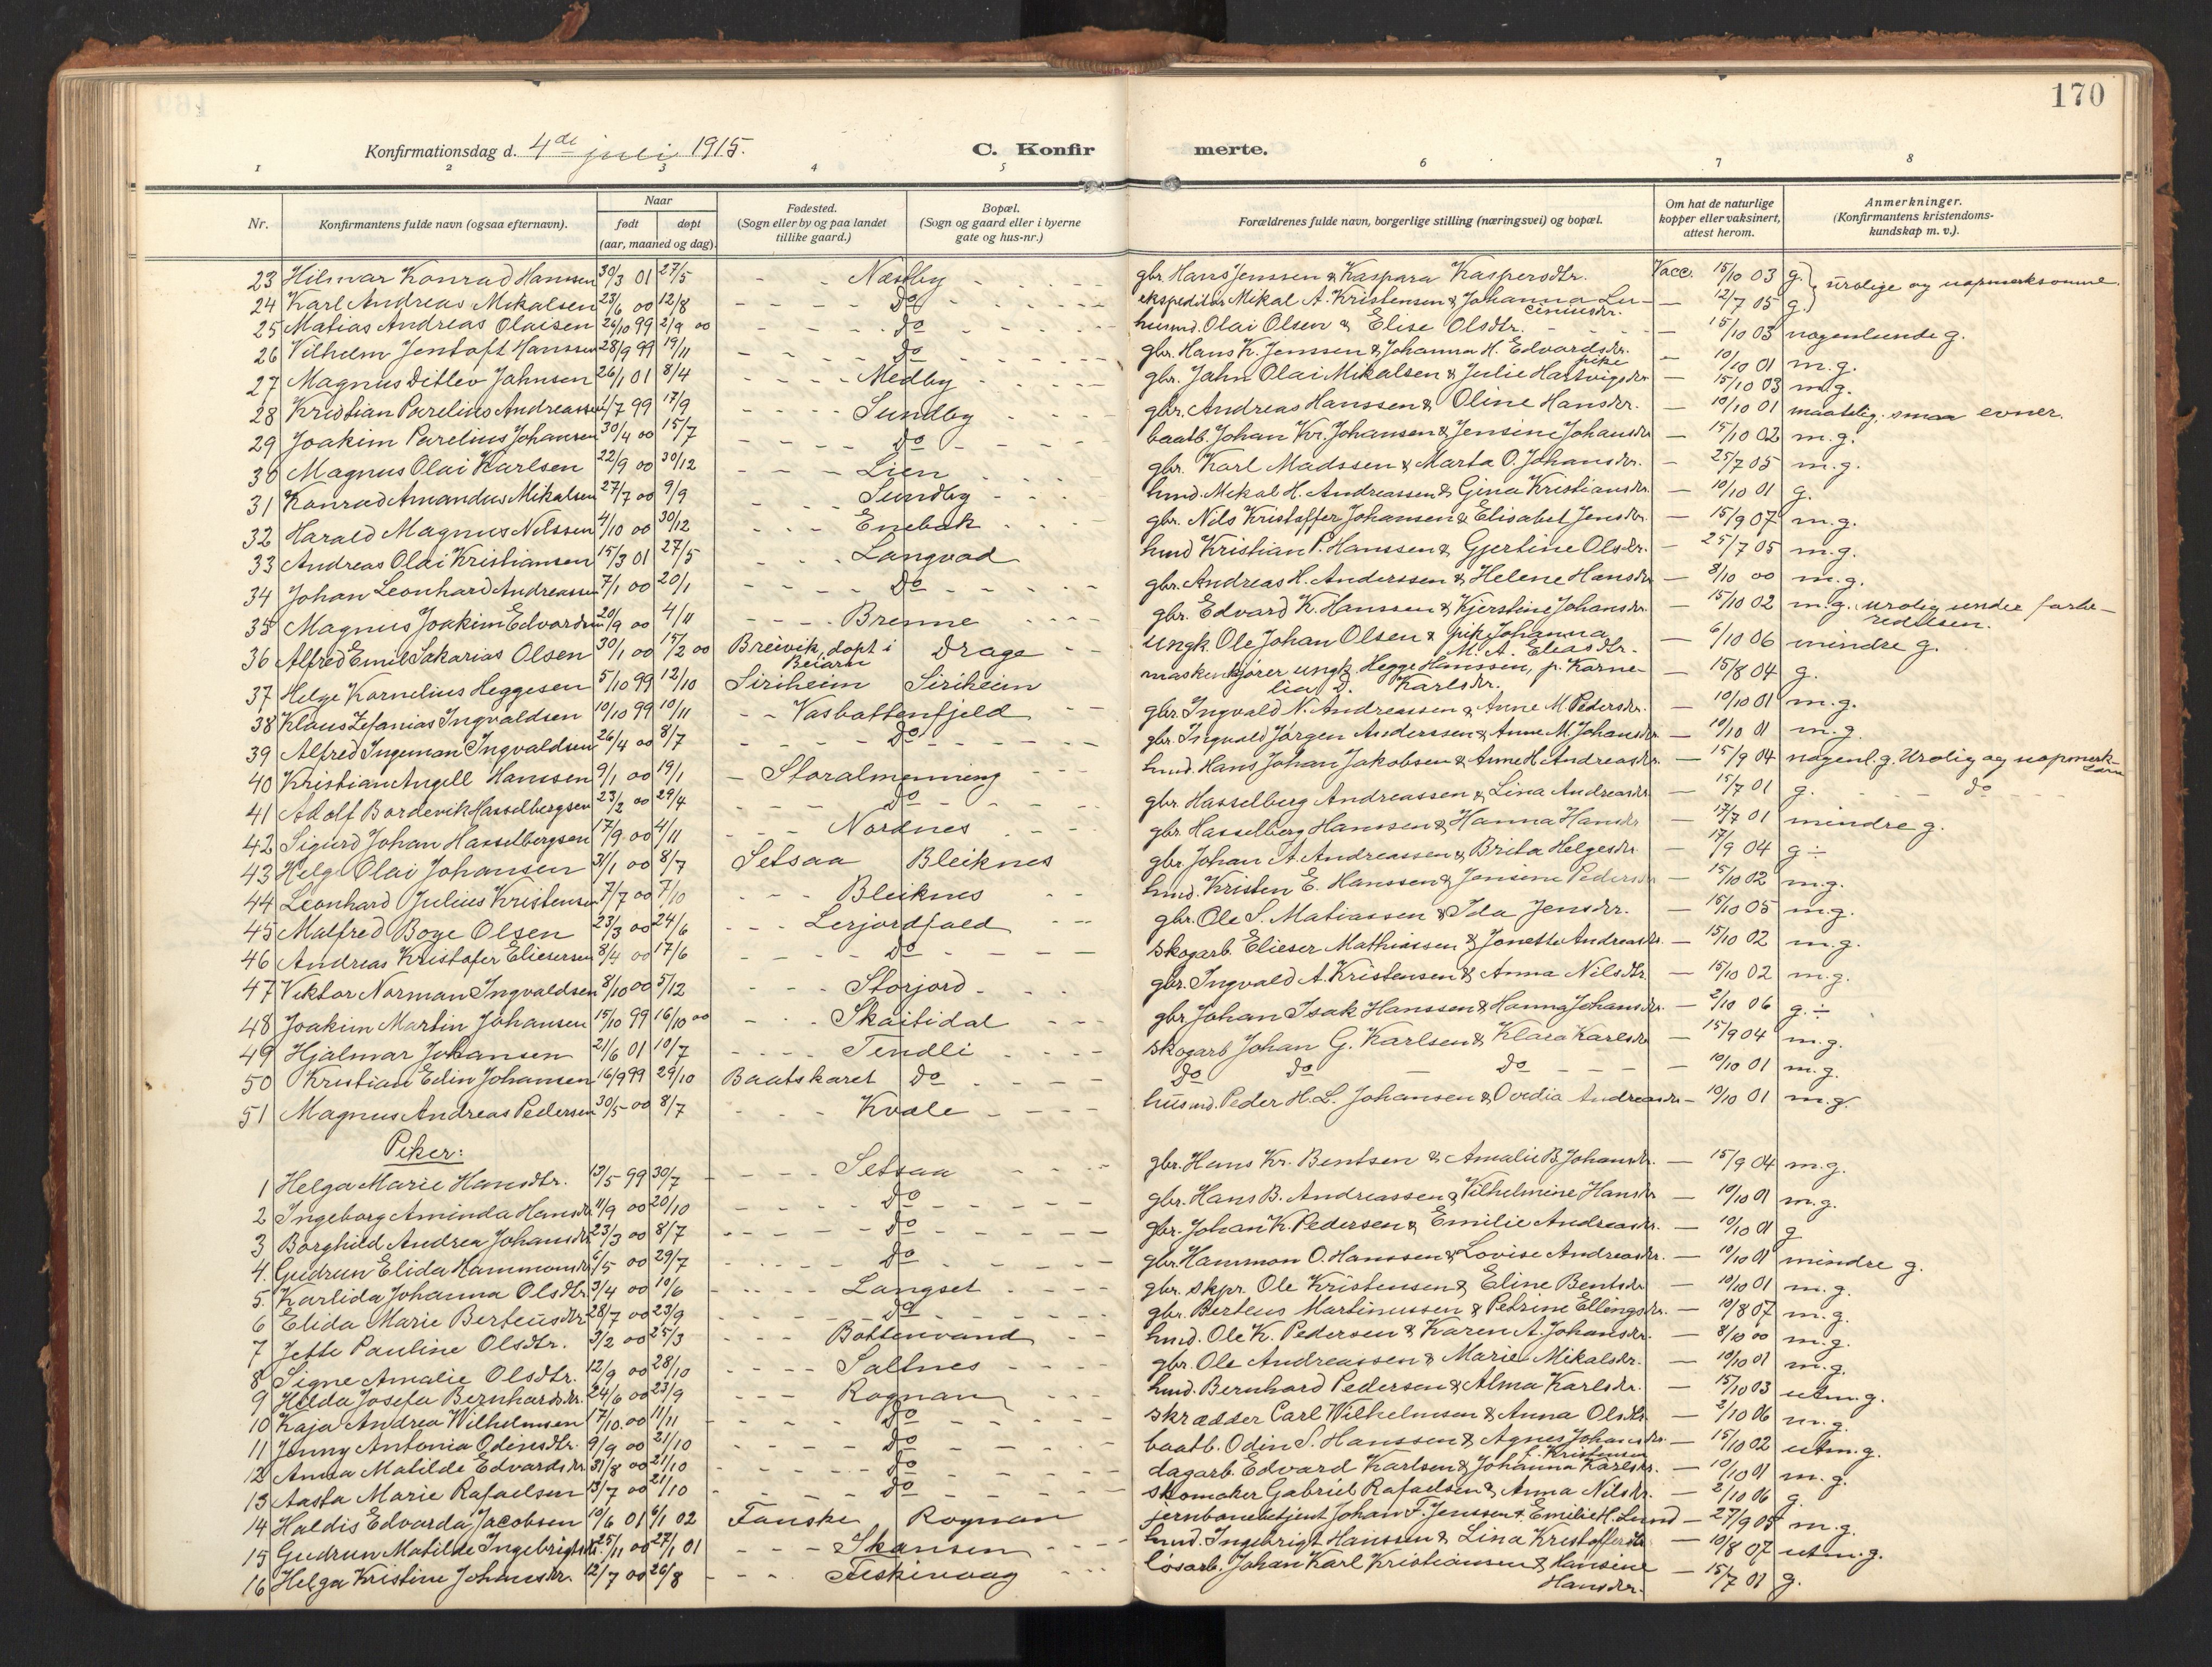 170
Konfirmationsdag d. 4de juli 1915.
C. Konfirmerte.
1 2 3 4 5 6 7 8
Nr. Konfirmantens fulde navn (ogsaa efternavn). Naar født døpt (aar, maaned og dag). Fødested. (Sogn eller by og paa landet tillike gaard.) Bopæl. (Sogn og gaard eller i byerne gate og hus-nr.) Forældrenes fulde navn, borgerlige stilling (næringsvei) og bopæl. Om hat de naturlige kopper eller vaksinert, attest herom. Anmerkninger. (Konfirmantens kristendoms-kundskap m. v.).
23 Hilmar Konrad Hanssen 30/3 01 27/5 - - Næstby - - gbr. Hans Jenssen & Kaspara Kaspersdtr. Vacc. 15/10 03 g. } urolige og uopmerksomme.
24 Karl Andreas Mikalsen 23/6 00 12/8 - - do - - ekspeditør Mikal A. Kristensen & Johanna Luciniusdr. — 12/7 05 g.
25 Matias Andreas Olaisen 26/10 99 2/9 00 - - do - - husmd. Olai Olsen & Elise Olsdtr. — 15/10 03 nogenlunde g.
26 Vilhelm Jentoft Hanssen 28/9 99 19/11 - - do - - gbr. Hans K. Jenssen & Johanna H. Edvardsdr. — 10/10 01 m.g.
27 Magnus Ditlev Jahnsen 26/1 01 8/4 - - Medby - - gbr. Jahn Olai Mikalsen & pike Julie Hartvigsdr — 15/10 03 m.g.
28 Kristian Parelius Andreassen 1/7 99 17/9 - - Sundby - - gbr. Andreas Hanssen & Oline Hansdr. — 10/10 01 maatelig. smaa evner.
29 Joakim Parelius Johansen 30/4 00 15/7 - - do - - baatb. Johan Kr. Johansen & Jensine Johansdr — 15/10 02 m.g.
30 Magnus Olai Karlsen 22/9 00 30/12 - - Lien - - gbr. Karl Madssen & Marta O. Johansdr. — 25/7 05 m.g.
31 Konrad Amandus Mikalsen 27/7 00 9/9 - - Sundby - - husd. Mikal H. Andreassen & Gina Kristiansdr. — 10/10 01 g.
32 Harald Magnus Nilssen 4/10 00 30/12 - - Enebak - - gbr. Nils Kristoffer Johansen & Elisabet Jensdr. — 15/9 07 m.g.
33 Andreas Olai Kristiansen 15/3 01 27/5 - - Langvad husd Kristian P. Hanssen & Gjertine Olsdr. — 25/7 05 m.g.
34 Johan Leonhard Andreassen 7/1 00 20/1 - - do - - gbr. Andreas H. Anderssen & Helene Hansdr — 8/10 00 m.g.
35 Magnus Joakim Edvardsen 20/9 00 4/11 - - Brenne - - gbr. Edvard K. Hanssen & Kjerstine Johansdr. — 15/10 02 m.g. urolig under forberedelsen.
36 Alfred Emil Sakarias Olsen 30/1 00 15/2 00 Breivik, døpt i Beiarn Drage - - Ungk. Ole Johan Olsen & pike Johanna M. A. Eliasdtr. — 6/10 06 mindre g.
37 Helge Kornelius Heggesen 5/10 99 12/10 Siriheim Siriheim maskinkjører ungk. Hegge Hanssen, p. Kornelia D. Karlsdr. — 15/8 04 g.
38 Klaus Zefanias Ingvaldsen 10/10 99 10/11 - - Vasbottenfjeld - - gbr. Ingvald N. Andreassen & Anne M. Pedersdr. — 10/10 01 m.g.
39 Alfred Ingeman Ingvaldsen 26/4 00 8/7 - - do - - gbr. Ingvald Jørgen Anderssen & Anne M. Johansdr — 10/10 01 m.g.
40 Kristian Angell Hanssen 9/1 00 19/1 - Storalmenning - - husd. Hans Johan Jakobsen & Anne H. Andreasdr. — 15/9 04 nogenl. g. Urolig og uopmerksom
41 Adolf Bordevik Hasselbergsen 23/2 00 29/4 - - do - - gbr. Hasselberg Andreassen & Lina Andreasdr. — 15/7 01 g. - - do - -
42 Sigurd Johan Hasselbergsen 17/9 00 4/11 - - Nordnes - - gbr. Hasselberg Hanssen & Hanna Hansdr — 17/7 01 mindre g.
43 Helg Olai Johansen 31/1 00 8/7 Setsaa Bleiknes gbr. Johan A. Andreassen & Brita Helgesdr. — 17/9 04 g ÷
44 Leonhard Julius Kristensen 7/7 00 7/10 - - Bleiknes - - husd. Kristen E. Hanssen & Jensine Pedersdr — 15/10 02 m.g.
45 Malfred Boye Olsen 23/3 00 24/6 - - Lerjordfald - - gbr. Ole S. Matiassen & Ida Jensdr. — 15/10 05 m.g.
46 Andreas Kristofer Eliesersen 8/4 00 17/6 - - do - - skogarb. Elieser Mathiassen & Jonette Andreasdr. — 15/10 02 m.g.
47 Viktor Norman Ingvaldsen 8/10 00 5/12 - - Storjord - - gbr. Ingvald A. Kristensen & Anna Nilsdtr. — 15/10 02 m.g.
48 Joakim Martin Johansen 15/10 99 16/10 00 - - Skaitidal - - gbr Johan Isak Hanssen & Hanna Johansdr. — 2/10 06 g. ÷
49 Hjalmar Johansen 21/6 01 10/7 - - Tendli - - skogarb Johan G. Karlsen & Klara Karlsdr — 15/9 04 m.g.
50 Kristian Edin Johansen 16/9 99 29/10 Baatskaret do - - do do — do - - — 10/10 01 m.g.
51 Magnus Andreas Pedersen 30/5 00 8/7 - - Kvale - - husmd. Peder H. L. Johansen & Ovidia Andreasdr — 10/10 01 m.g.
Piker:
1 Helga Marie Hansdtr. 13/5 99 30/7 - - Setsaa - - gbr. Hans Kr. Bentsen & Amalie B. Johansdr. — 15/9 04 m.g.
2 Ingeborg Aminda Hansdr 11/9 00 20/10 - - do - - gbr. Hans B. Andreassen & Vilhelmine Hansdr — 10/10 01 m.g.
3 Borghild Andrea Johansdr 23/3 00 8/7 - - do - - gbr. Johan K. Pedersen & Emilie Andreasdr. — 10/10 01 g
4. Gudrun Elida Hammonsdr. 6/5 00 29/7 - - do - - gbr. Hammon O. Hanssen & Lovise Andreasdr. — 10/10 01 mindre g.
5. Karlida Johanna Olsdtr 3/4 00 10/6 - - Langset - - gbr. skpr. Ole Kristensen & Eline Bentsdr — 10/10 01 m.g.
6 Elida Marie Berteusdr 28/7 00 23/9 - - do - - gbr. Berteus Martinussen & Petrine Ellingsdr. — 10/8 07 m.g.
7 Jette Pauline Olsdtr. 3/2 00 25/3 - - Bottenvand - - husd. Ole K. Pedersen & Karen A. Johansdr. — 8/10 00 m.g.
8 Signe Amalie Olsdtr. 12/9 00 28/10 - - Saltnes - - gbr. Ole Andreassen & Marie Mikalsdr. — 10/10 01 m.g.
9 Hilda Josefa Bernhardsdr. 24/6 00 23/9 - - Rognan - - husd. Bernhard Pedersen & Alma Karlsdr. — 15/10 03 utm.g.
10 Kaja Andrea Wilhelmsen 17/10 00 11/11 - - do - - skrædder Carl Wilhelmsen & Anna Olsdtr — 2/10 06 m.g.
11 Jenny Antonia Odinsdtr. 9/9 00 21/10 - - do - - baatb. Odin S. Hanssen & Agnes Johansdr. — 15/10 02 utm.g.
12 Anna Matilde Edvardsdr. 31/8 00 21/10 - - do - - dagarb. Edvard Karlsen & Johanna Karlsdr. f. Kristensen — 10/10 01 m.g.
13 Aasta Marie Rafaelsen 13/7 00 21/10 - - do - - skomaker Gabriel Rafaelsen & Anna Nilsdr. — 2/10 06 g.
14 Haldis Edvarda Jacobsen 10/6 01 6/1 02 Fauske Rognan jernbanebetjent Johan F. Jenssen & Emilie H. Lund — 27/9 05 m.g.
15 Gudrun Matilde Ingebrigtsdr 25/11 00 27/1 01 - - Skansen - - husd. Ingebrigt Hanssen & Lina Kristoffersdr — 10/8 07 utm.g.
16 Helga Kristine Johansdr. 12/7 00 26/8 - - Fiskevaag - - løsarb. Johan Karl Kristiansen & Hansine Hansdr. — 15/7 01 g.